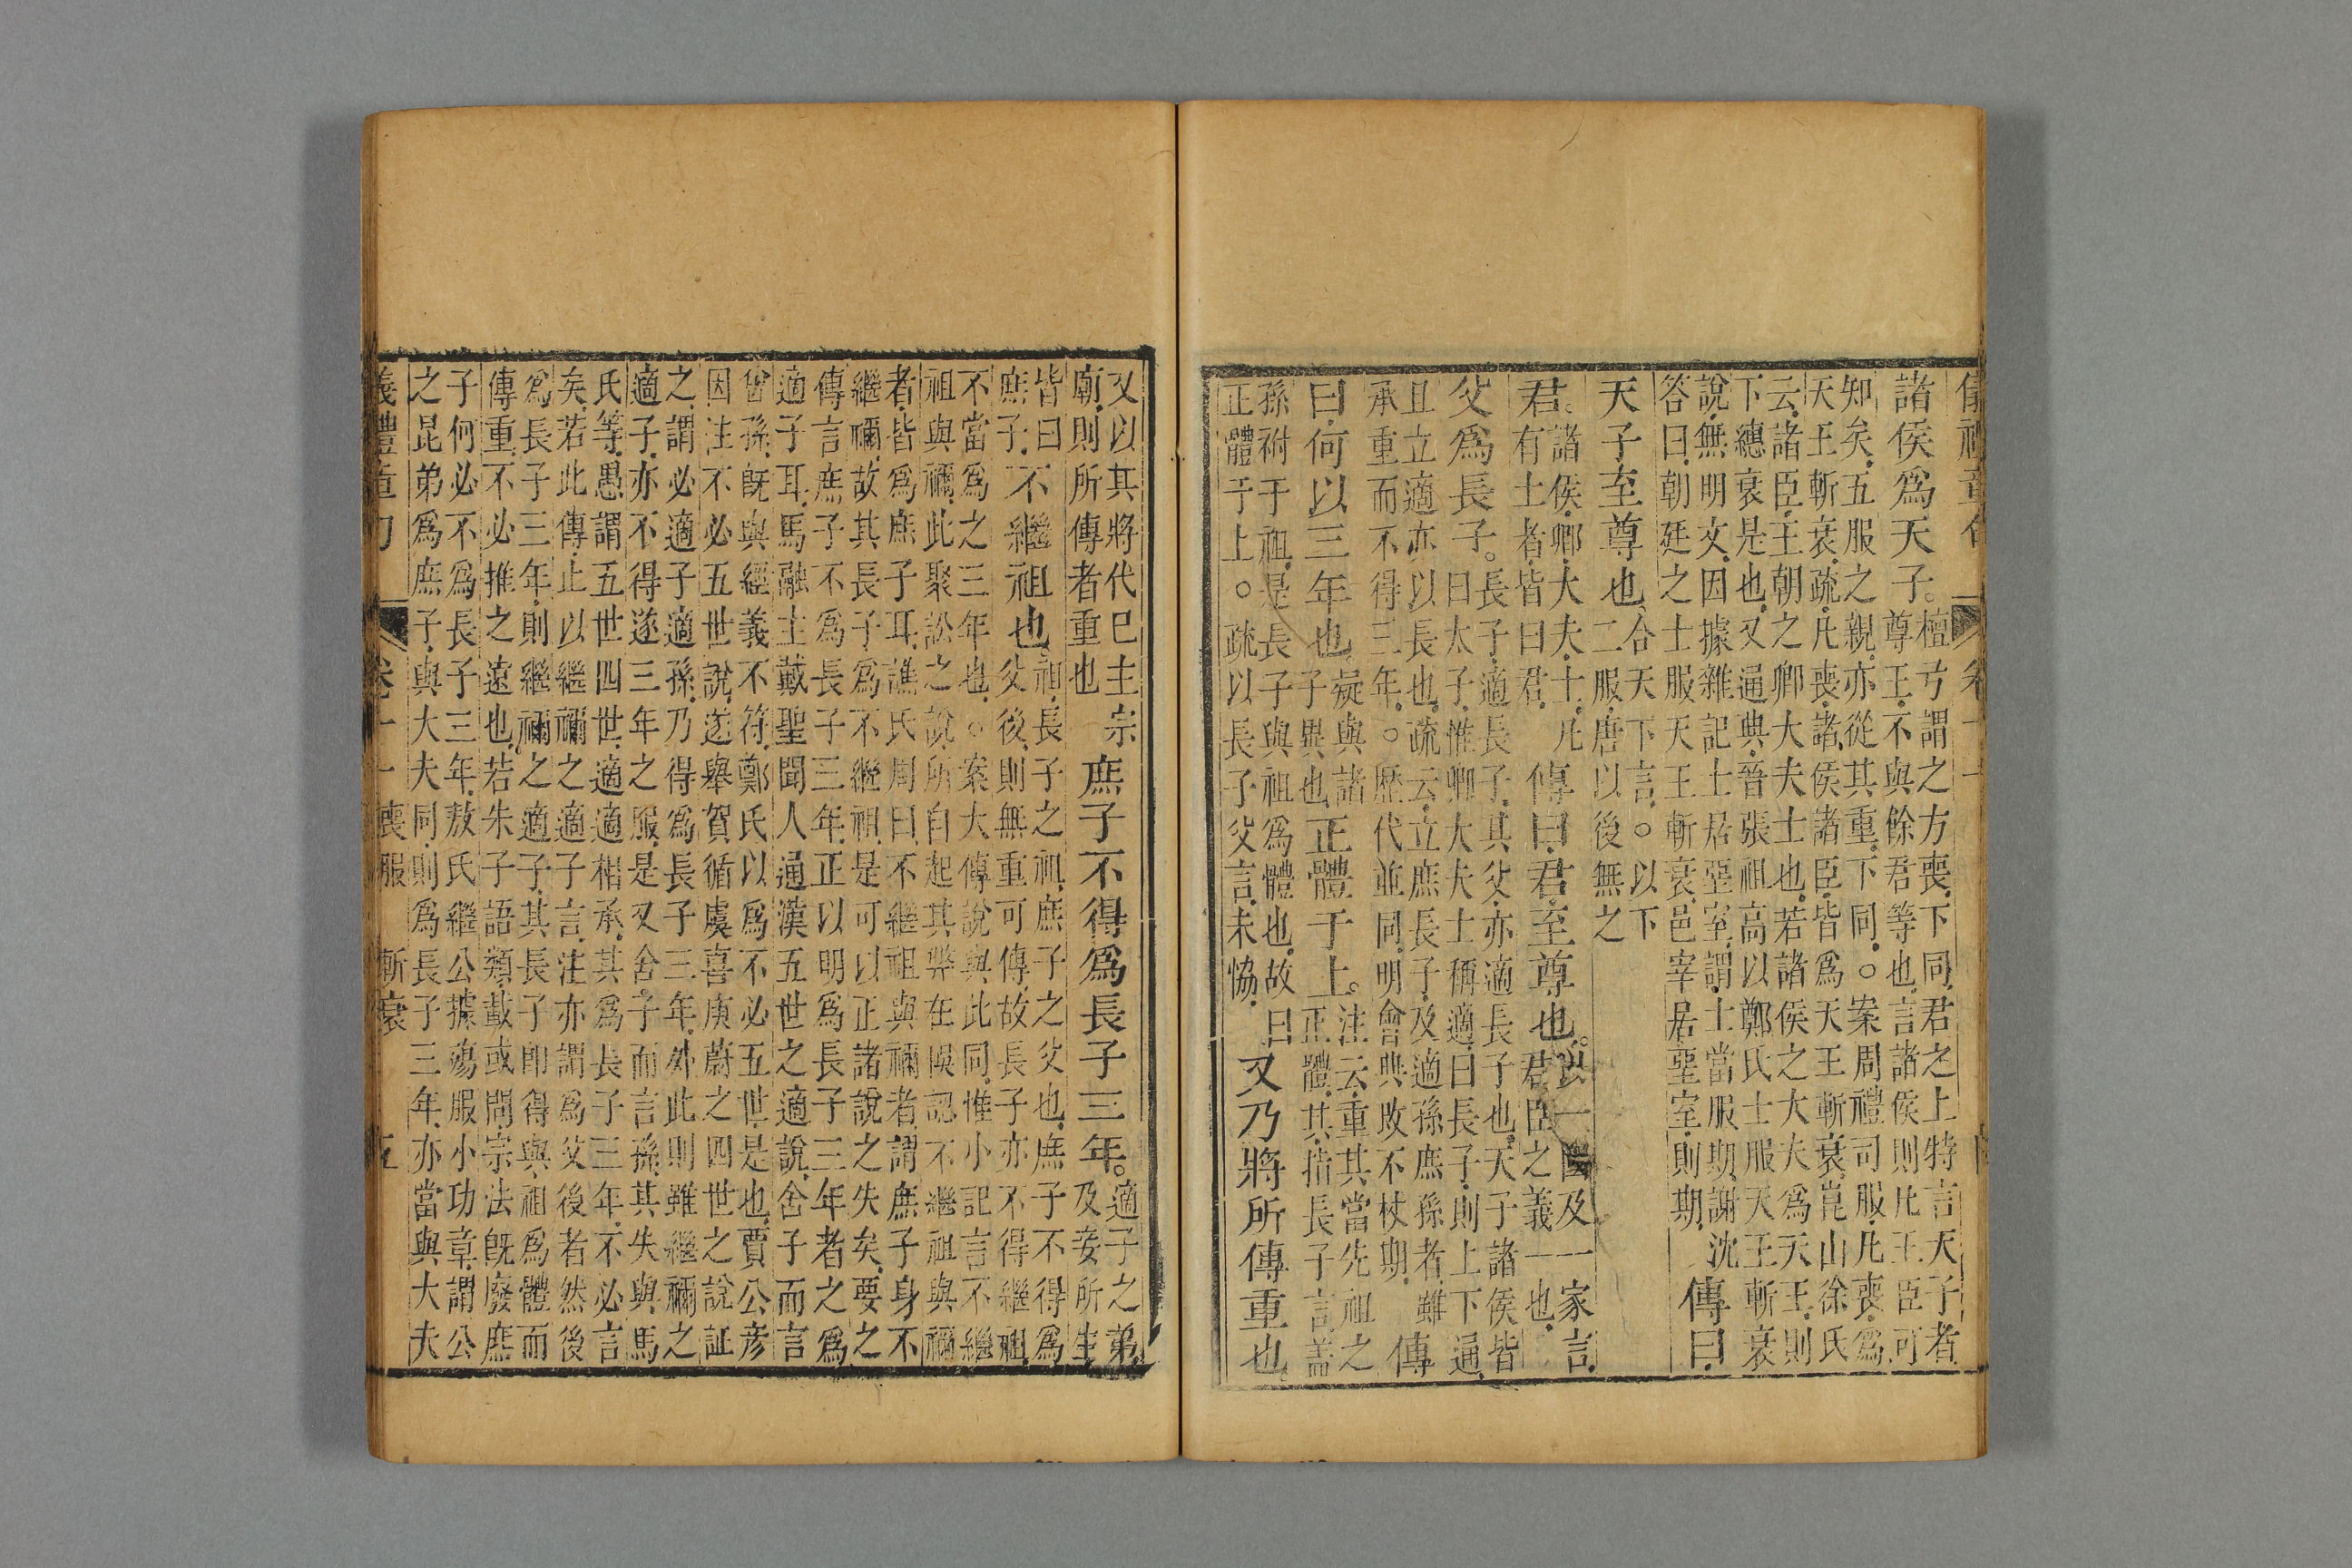 儀禮章句
卷十一
諸侯爲天子。
檀弓謂之方喪下同君之上特言天子者
尊王不與餘君等也言諸侯則凡王臣可
知矣五服之親亦從其重下同。○案周禮司服凡喪爲
天王斬衰疏凡喪諸侯諸臣皆爲天王斬衰崑山徐氏
云諸臣王朝之卿大夫士也若諸侯之大夫爲天王則
下繐衰是也又通典晉張祖高以鄭氏士服天王斬衰
說無明文因據雜記士居堊室謂士當服期謝沈
答曰朝廷之士服天王斬衰邑宰居堊室則期
傳曰
天子至尊也
合天下言。○以下
二服唐以後無之
君。
諸侯卿大夫士凡
有土者皆曰君
傳曰君至尊也。
以一國及一家言
君臣之義一也
父爲長子。
長子適長子其父亦適長子也天子諸侯皆
曰太子惟卿大夫士稱適曰長子則上下通
且立適亦以長也疏云立庶長子及適孫庶孫者雖
承重而不得三年。○歷代並同明會典改不杖期
傳
曰何以三年也
疑與諸
子異也
正體于上。
注云重其當先祖之
正體其指長子言葢
孫祔于祖是長子與祖爲體也故曰
正體于上。○疏以長子父言未恊
又乃將所傳重也
又以其將代巳主宗
廟則所傳者重也
庶子不得爲長子三年。
適子之弟
及妾所生
皆曰
庶子
不繼祖也
祖長子之祖庶子之父也庶子不得爲
父後則無重可傳故長子亦不得繼祖
不當爲之三年也。○案大傳說與此同惟小記言不繼
祖與禰此聚訟之說所自起其弊在悞認不繼祖與禰
者皆爲庶子耳譙氏周曰不繼祖與禰者謂庶子身不
繼禰故其長子爲不繼祖是可以正諸說之失矣要之
傳言庶子不爲長子三年正以明爲長子三年者之爲
適子耳馬融主戴聖聞人通漢五世之適說舍子而言
曾孫旣與經義不符鄭氏以爲不必五世是也賈公彦
因注不必五世說遂舉賀循虞喜庾蔚之四世之說証
之謂必適子適孫乃得爲長子三年外此則雖繼禰之
適子亦不得遂三年之服是又舍子而言孫其失與馬
氏等愚謂五世四世適適相承其爲長子三年不必言
矣若此傳止以繼禰之適子言注亦謂爲父後者然後
爲長子三年則繼禰之適子其長子卽得與祖爲體而
傳重不必推之遠也若朱子語類載或問宗法旣廢庶
子何必不爲長子三年敖氏繼公據殤服小功章謂公
之昆弟爲庶子與大夫同則爲長子三年亦當與大夫
義禮章句
卷十一
喪服
斬衰
五